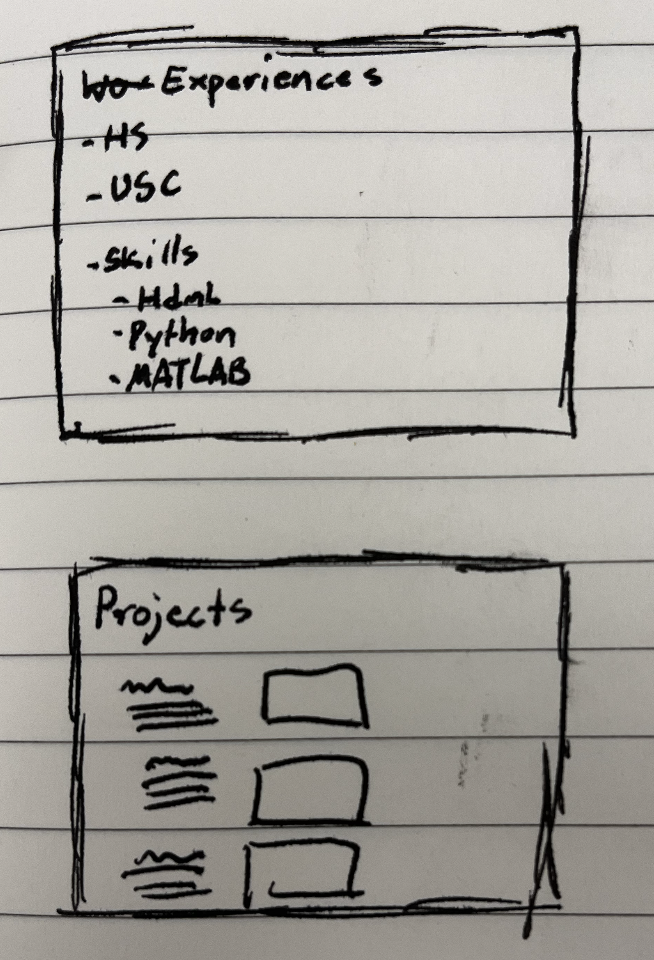 Experiences
- HS
- USC
- Skills
- Html
- Python
- MATLAB
Projects